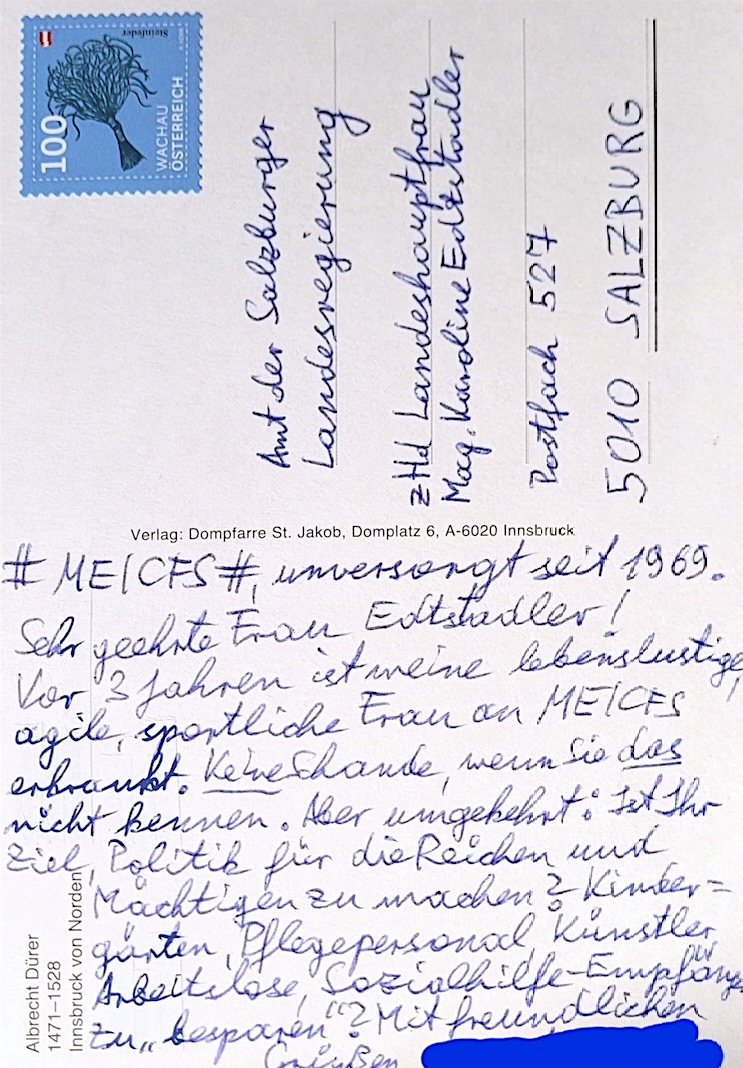 Steinfeder
100
WACHAU
ÖSTERREICH
Amt der Salzburger
Landesregierung
zHd Landeshauptfrau
Mag. Karoline Edtstadler
Postfach 527
5010 SALZBURG
Verlag: Dompfarre St. Jakob, Domplatz 6, A-6020 Innsbruck
# ME/CFS #, unversorgt seit 1969.
Sehr geehrte Frau Edtstadler!
Vor 3 Jahren ist meine lebenslustige,
agile, sportliche Frau an ME/CFS
erkrankt. Keine Schande, wenn Sie das
nicht kennen. Aber umgekehrt: Ist Ihr
Ziel, Politik für die Reichen und
Mächtigen zu machen? Kinder=
gärten, Pflegepersonal, Künstler
Arbeitslose, Sozialhilfe-Empfänge
zu „besparen“? Mit freundlichen
Grüßen
Albrecht Dürer
1471–1528
Innsbruck von Norden